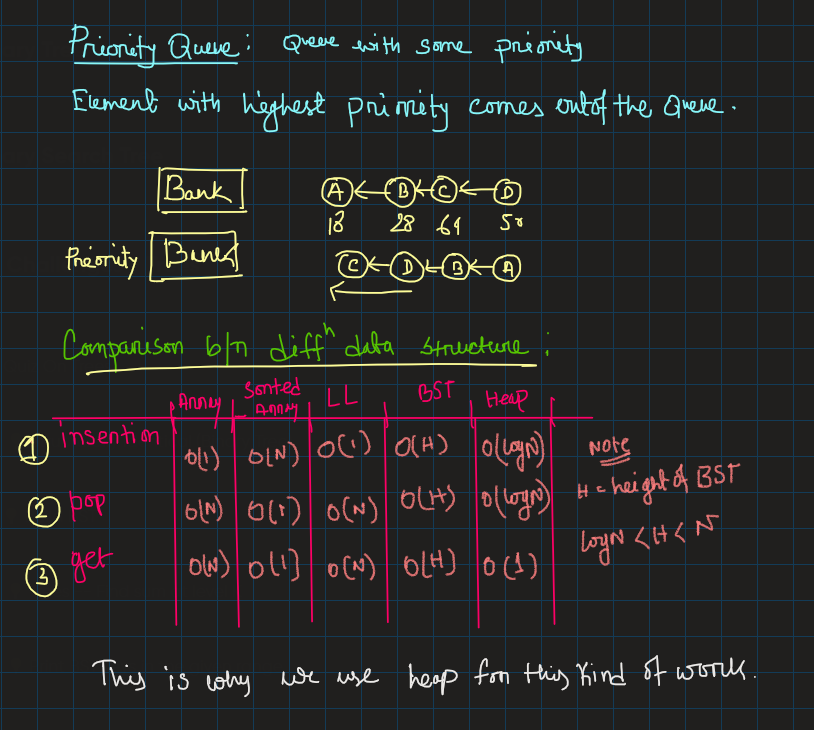 Priority Queue: Queue with some priority
Element with highest priority comes out of the Queue.
Bank A B C D
18 28 64 50
Priority Bank C D B A
Comparison b/n diffⁿ data structure:
Array Sorted Array LL BST Heap
① insertion O(1) O(N) O(1) O(H) O(logN)
② pop O(N) O(1) O(N) O(H) O(logN)
③ get O(N) O(1) O(N) O(H) O(1)
Note
H = height of BST
logN < H < N
This is why we use heap for this kind of work.